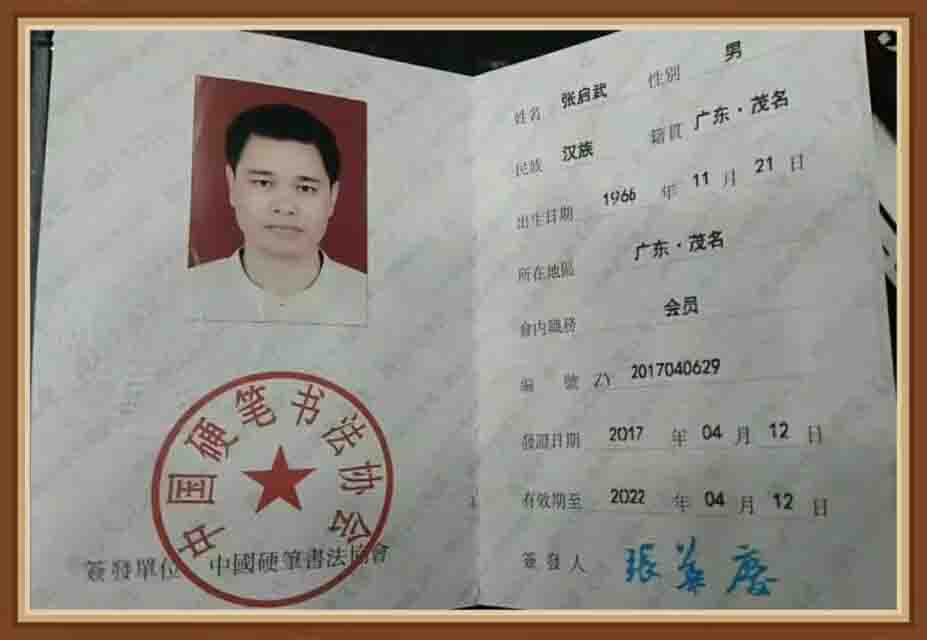 中国硬笔书法协会
簽發單位 中國硬筆書法協會
姓名 张启武 性别 男
民族 汉族 籍貫 广东·茂名
出生日期 1966 年 11 月 21 日
所在地區 广东·茂名
會内職務 会员
编號 ZY 2017040629
發證日期 2017 年 04 月 12 日
有效期至 2022 年 04 月 12 日
簽發人 张华庆